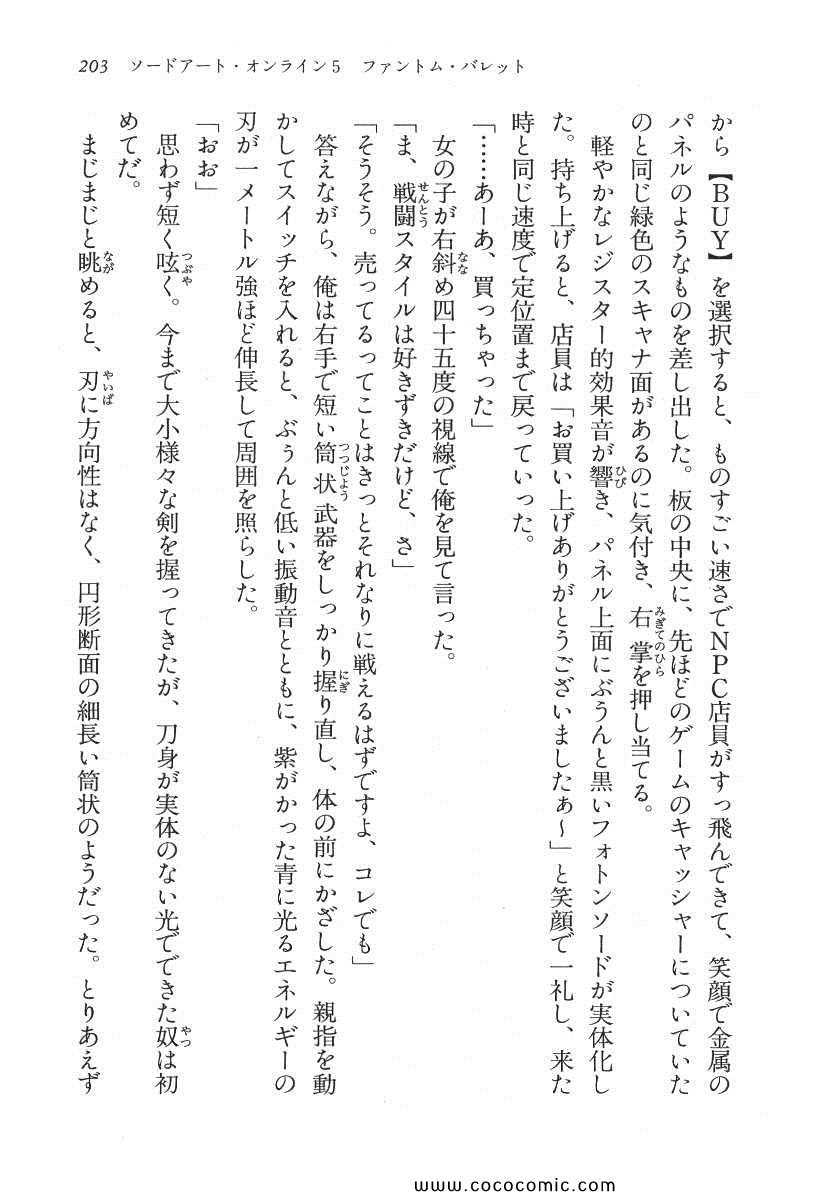 203　ソードアート・オンライン5　ファントム・バレット
から【BUY】を選択すると、ものすごい速さでNPC店員がすっ飛んできて、笑顔で金属の
パネルのようなものを差し出した。板の中央に、先ほどのゲームのキャッシャーについていた
のと同じ緑色のスキャナ面があるのに気付き、右掌を押し当てる。
　軽やかなレジスター的効果音が響き、パネル上面にぶうんと黒いフォトンソードが実体化し
た。持ち上げると、店員は「お買い上げありがとうございましたぁ～」と笑顔で一礼し、来た
時と同じ速度で定位置まで戻っていった。
「……あーあ、買っちゃった」
　女の子が右斜め四十五度の視線で俺を見て言った。
「ま、戦闘スタイルは好きずきだけど、さ」
「そうそう。売ってるってことはきっとそれなりに戦えるはずですよ、コレでも」
　答えながら、俺は右手で短い筒状武器をしっかり握り直し、体の前にかざした。親指を動
かしてスイッチを入れると、ぶぅんと低い振動音とともに、紫がかった青に光るエネルギーの
刃が一メートル強ほど伸長して周囲を照らした。
「おお」
　思わず短く呟く。今まで大小様々な剣を握ってきたが、刀身が実体のない光でできた奴は初
めてだ。
　まじまじと眺めると、刃に方向性はなく、円形断面の細長い筒状のようだった。とりあえず
www.cococomic.com